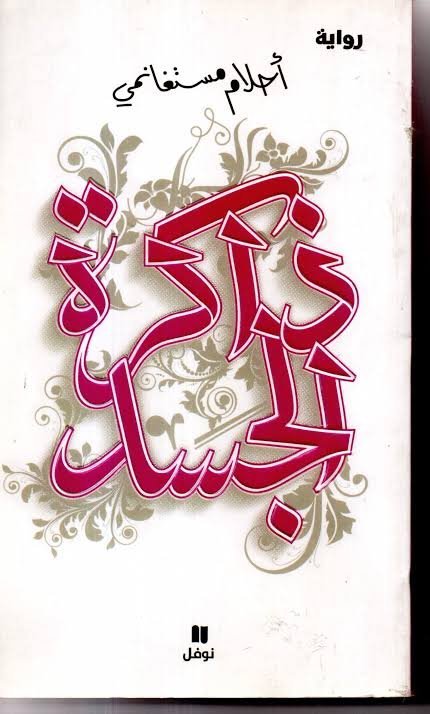 رواية
أحلام مستغانمي
ذاكرة
الجسد
نوفل